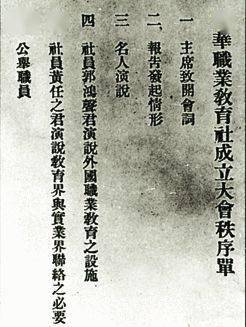 華職業教育社成立大會秩序單
一 主席致開會詞
二、報告發起情形
三 名人演說
四 社員郭鴻聲君演說外國職業教育之設施
社員黃任之君演說教育界與實業界聯絡之必要
公舉職員